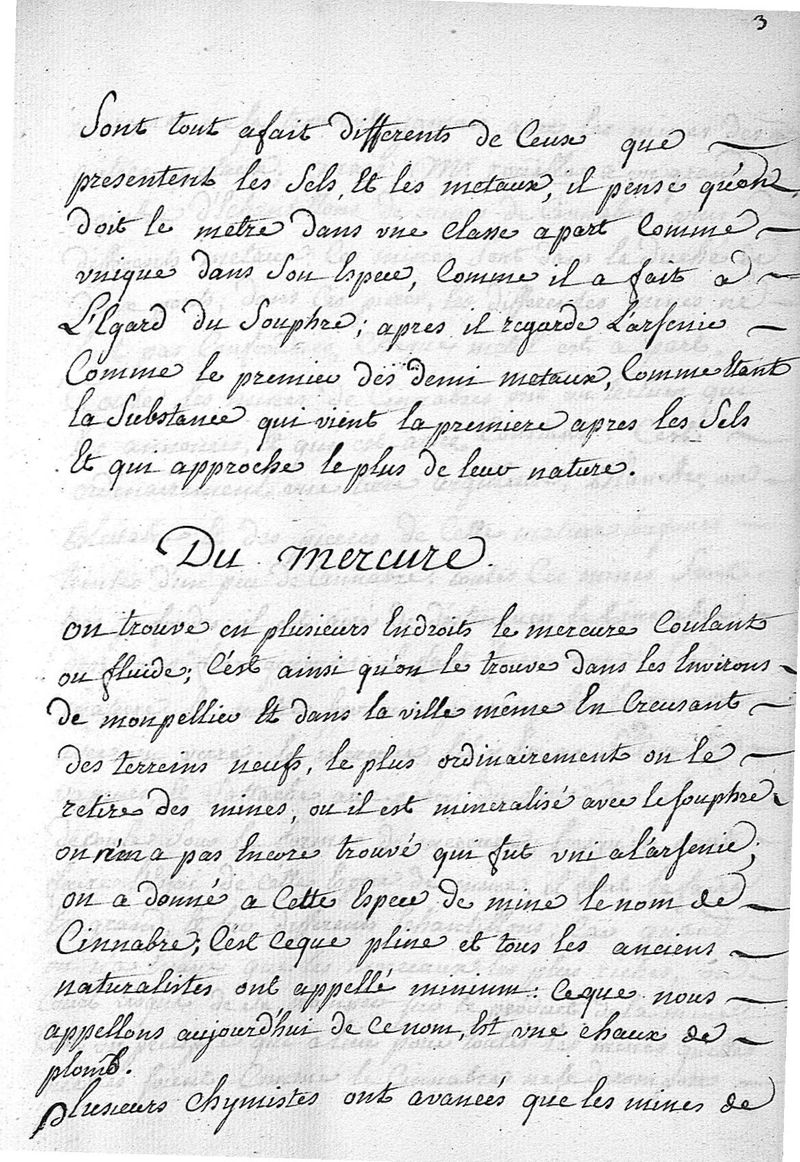 3
Sont tout afait differents de Ceux que
presentent les Sels, Et les metaux, il pense qu'on
doit le mètre dans vne Classe apart Comme
vnique dans Son Espece, Comme il a fait à
L'Egard du Souphre; apres il regarde L'arsenic
Comme le premier des demi metaux, Comme Etant
la Substance qui vient la premiere apres les Sels
Et qui approche le plus de leur nature.
Du mercure
on trouve en plusieurs Endroits le mercure Coulant
ou fluide; C'est ainsi qu'on le trouve dans les Environs
de monpellier Et dans la ville même En Creusant
des terreins neufs, le plus ordinairement on le
retire des mines, ou il est mineralisé avec le souphre
on n'en a pas Encore trouvé qui fut vni a l'arsenic;
on a donné a Cette Espece de mine le nom de
Cinnabre; C'est Ceque pline et tous les anciens
naturalistes ont appellé minium: Ceque nous
appellons aujourd'hui de Cenom, Est vne chaux de
plomb.
plusieurs Chymistes ont avancés que les mines de